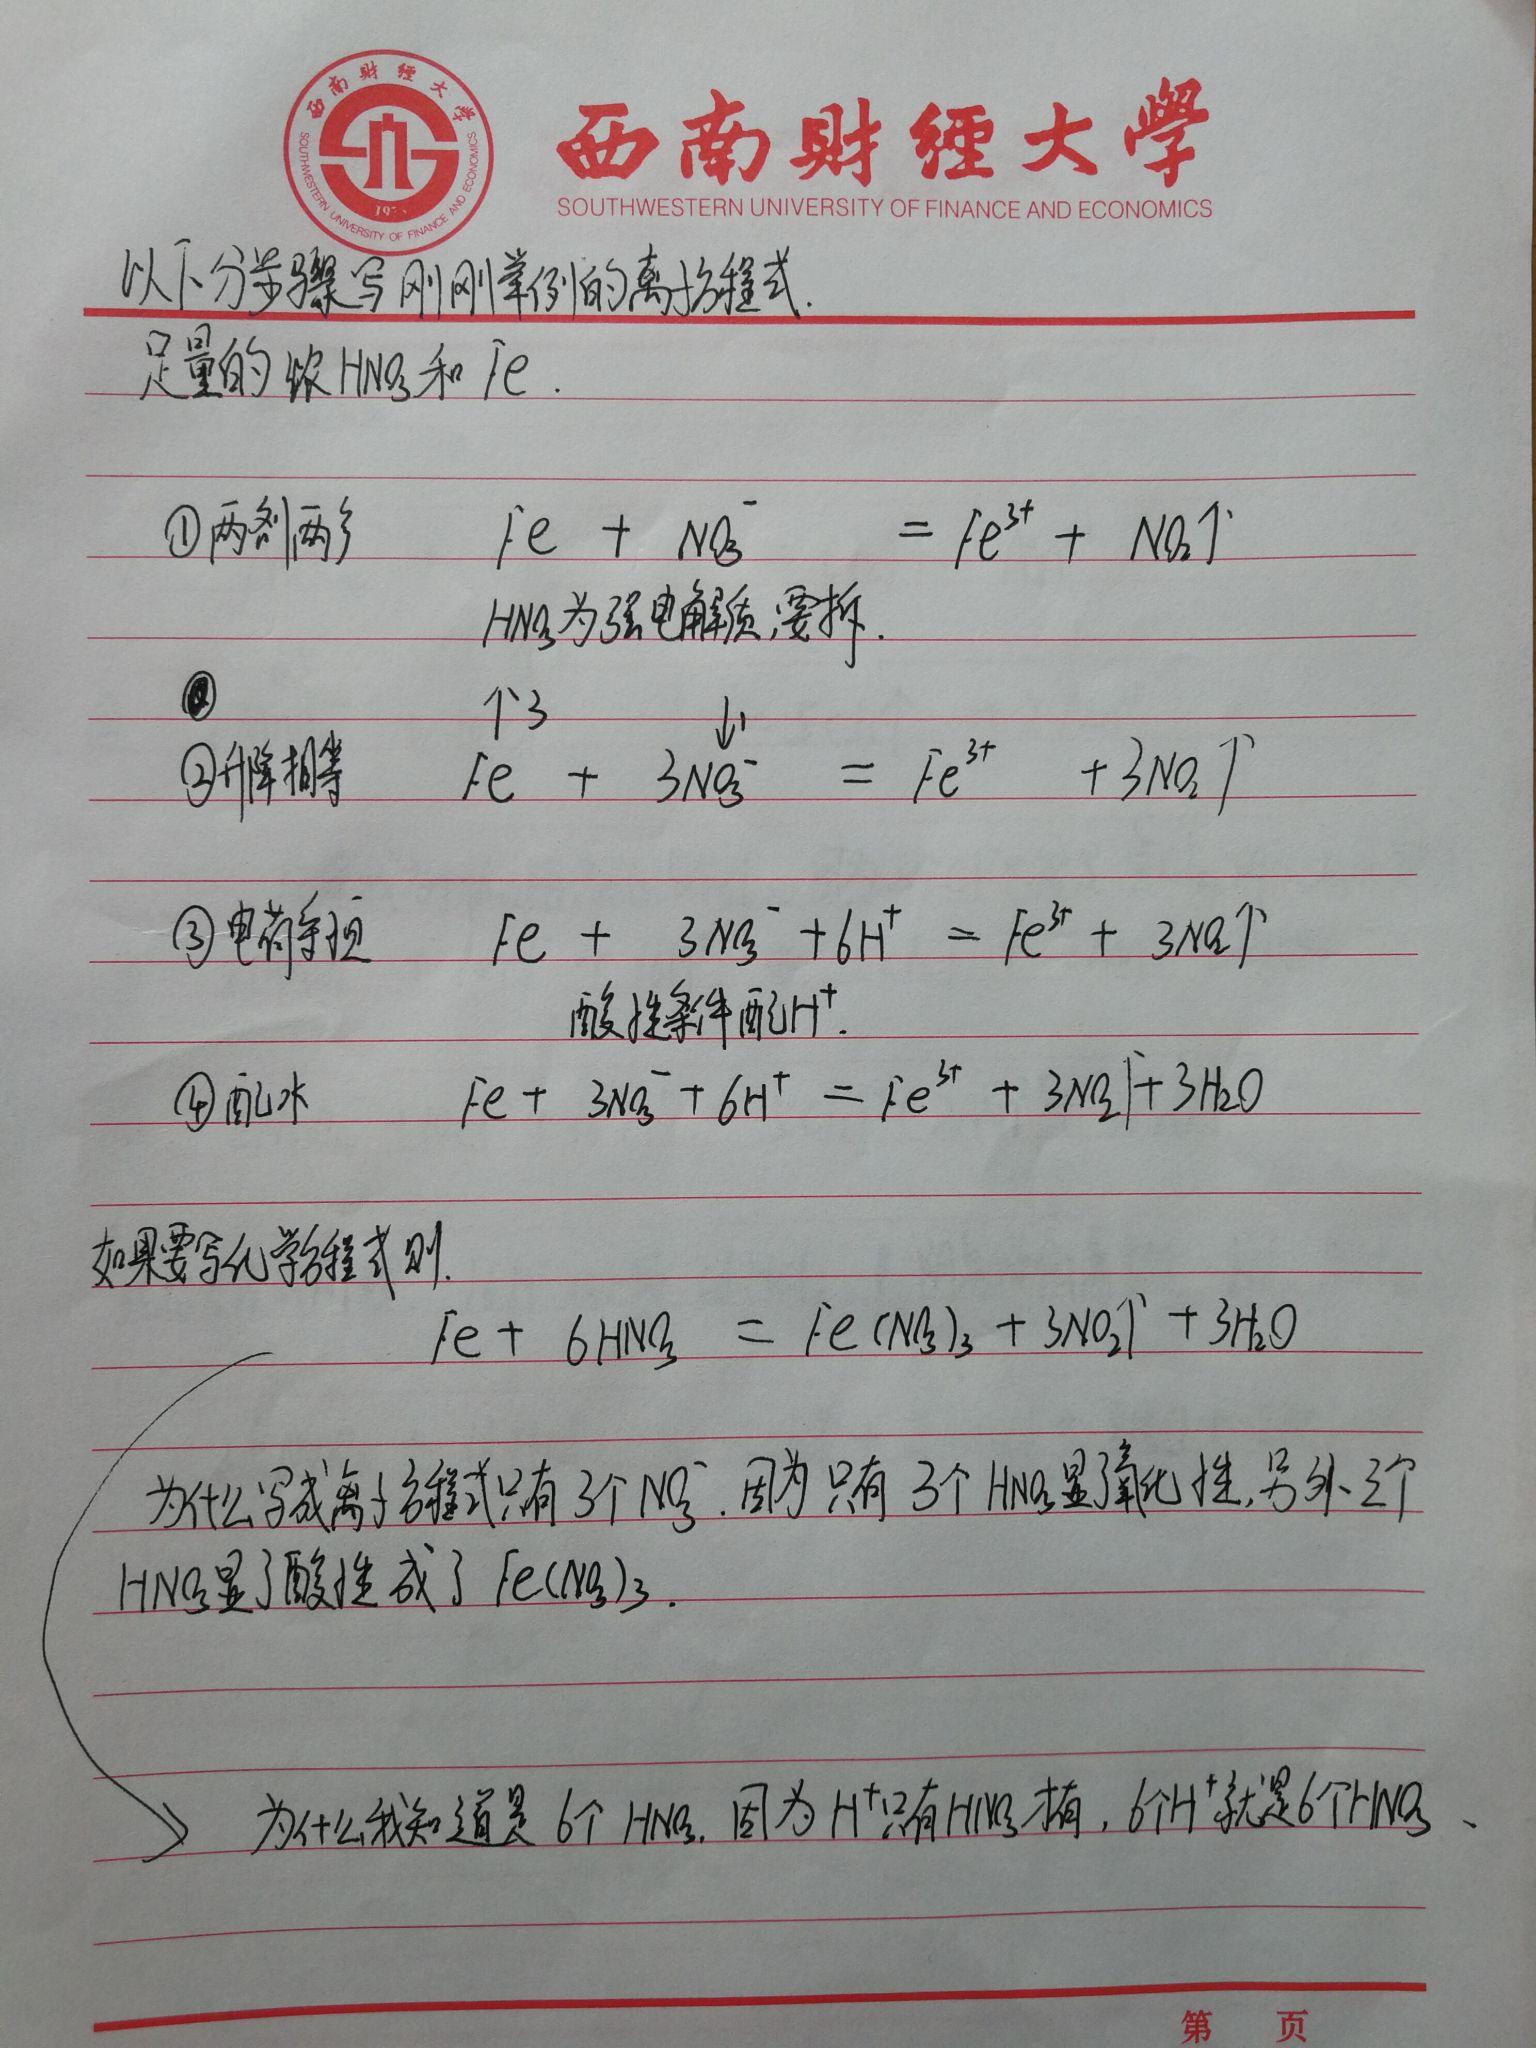 西南财经大学
SOUTHWESTERN UNIVERSITY OF FINANCE AND ECONOMICS
西南财經大學
SOUTHWESTERN UNIVERSITY OF FINANCE AND ECONOMICS
以下分步骤写刚刚举例的离子方程式.
足量的浓HNO3和Fe.
①两剂两产 Fe + NO3⁻ = Fe³⁺ + NO2↑
HNO3为强电解质,要拆.
↑3 ↓1
②升降相等 Fe + 3NO3⁻ = Fe³⁺ + 3NO2↑
③电荷守恒 Fe + 3NO3⁻ + 6H⁺ = Fe³⁺ + 3NO2↑
酸性条件配H⁺.
④配水 Fe + 3NO3⁻ + 6H⁺ = Fe³⁺ + 3NO2↑ + 3H2O
如果要写化学方程式则.
Fe + 6HNO3 = Fe(NO3)3 + 3NO2↑ + 3H2O
为什么写成离子方程式只有3个NO3⁻.因为只有3个HNO3显了氧化性,另外三个
HNO3显了酸性成了Fe(NO3)3.
为什么我知道是6个HNO3.因为H⁺只有HNO3才有,6个H⁺就是6个HNO3、
第 页